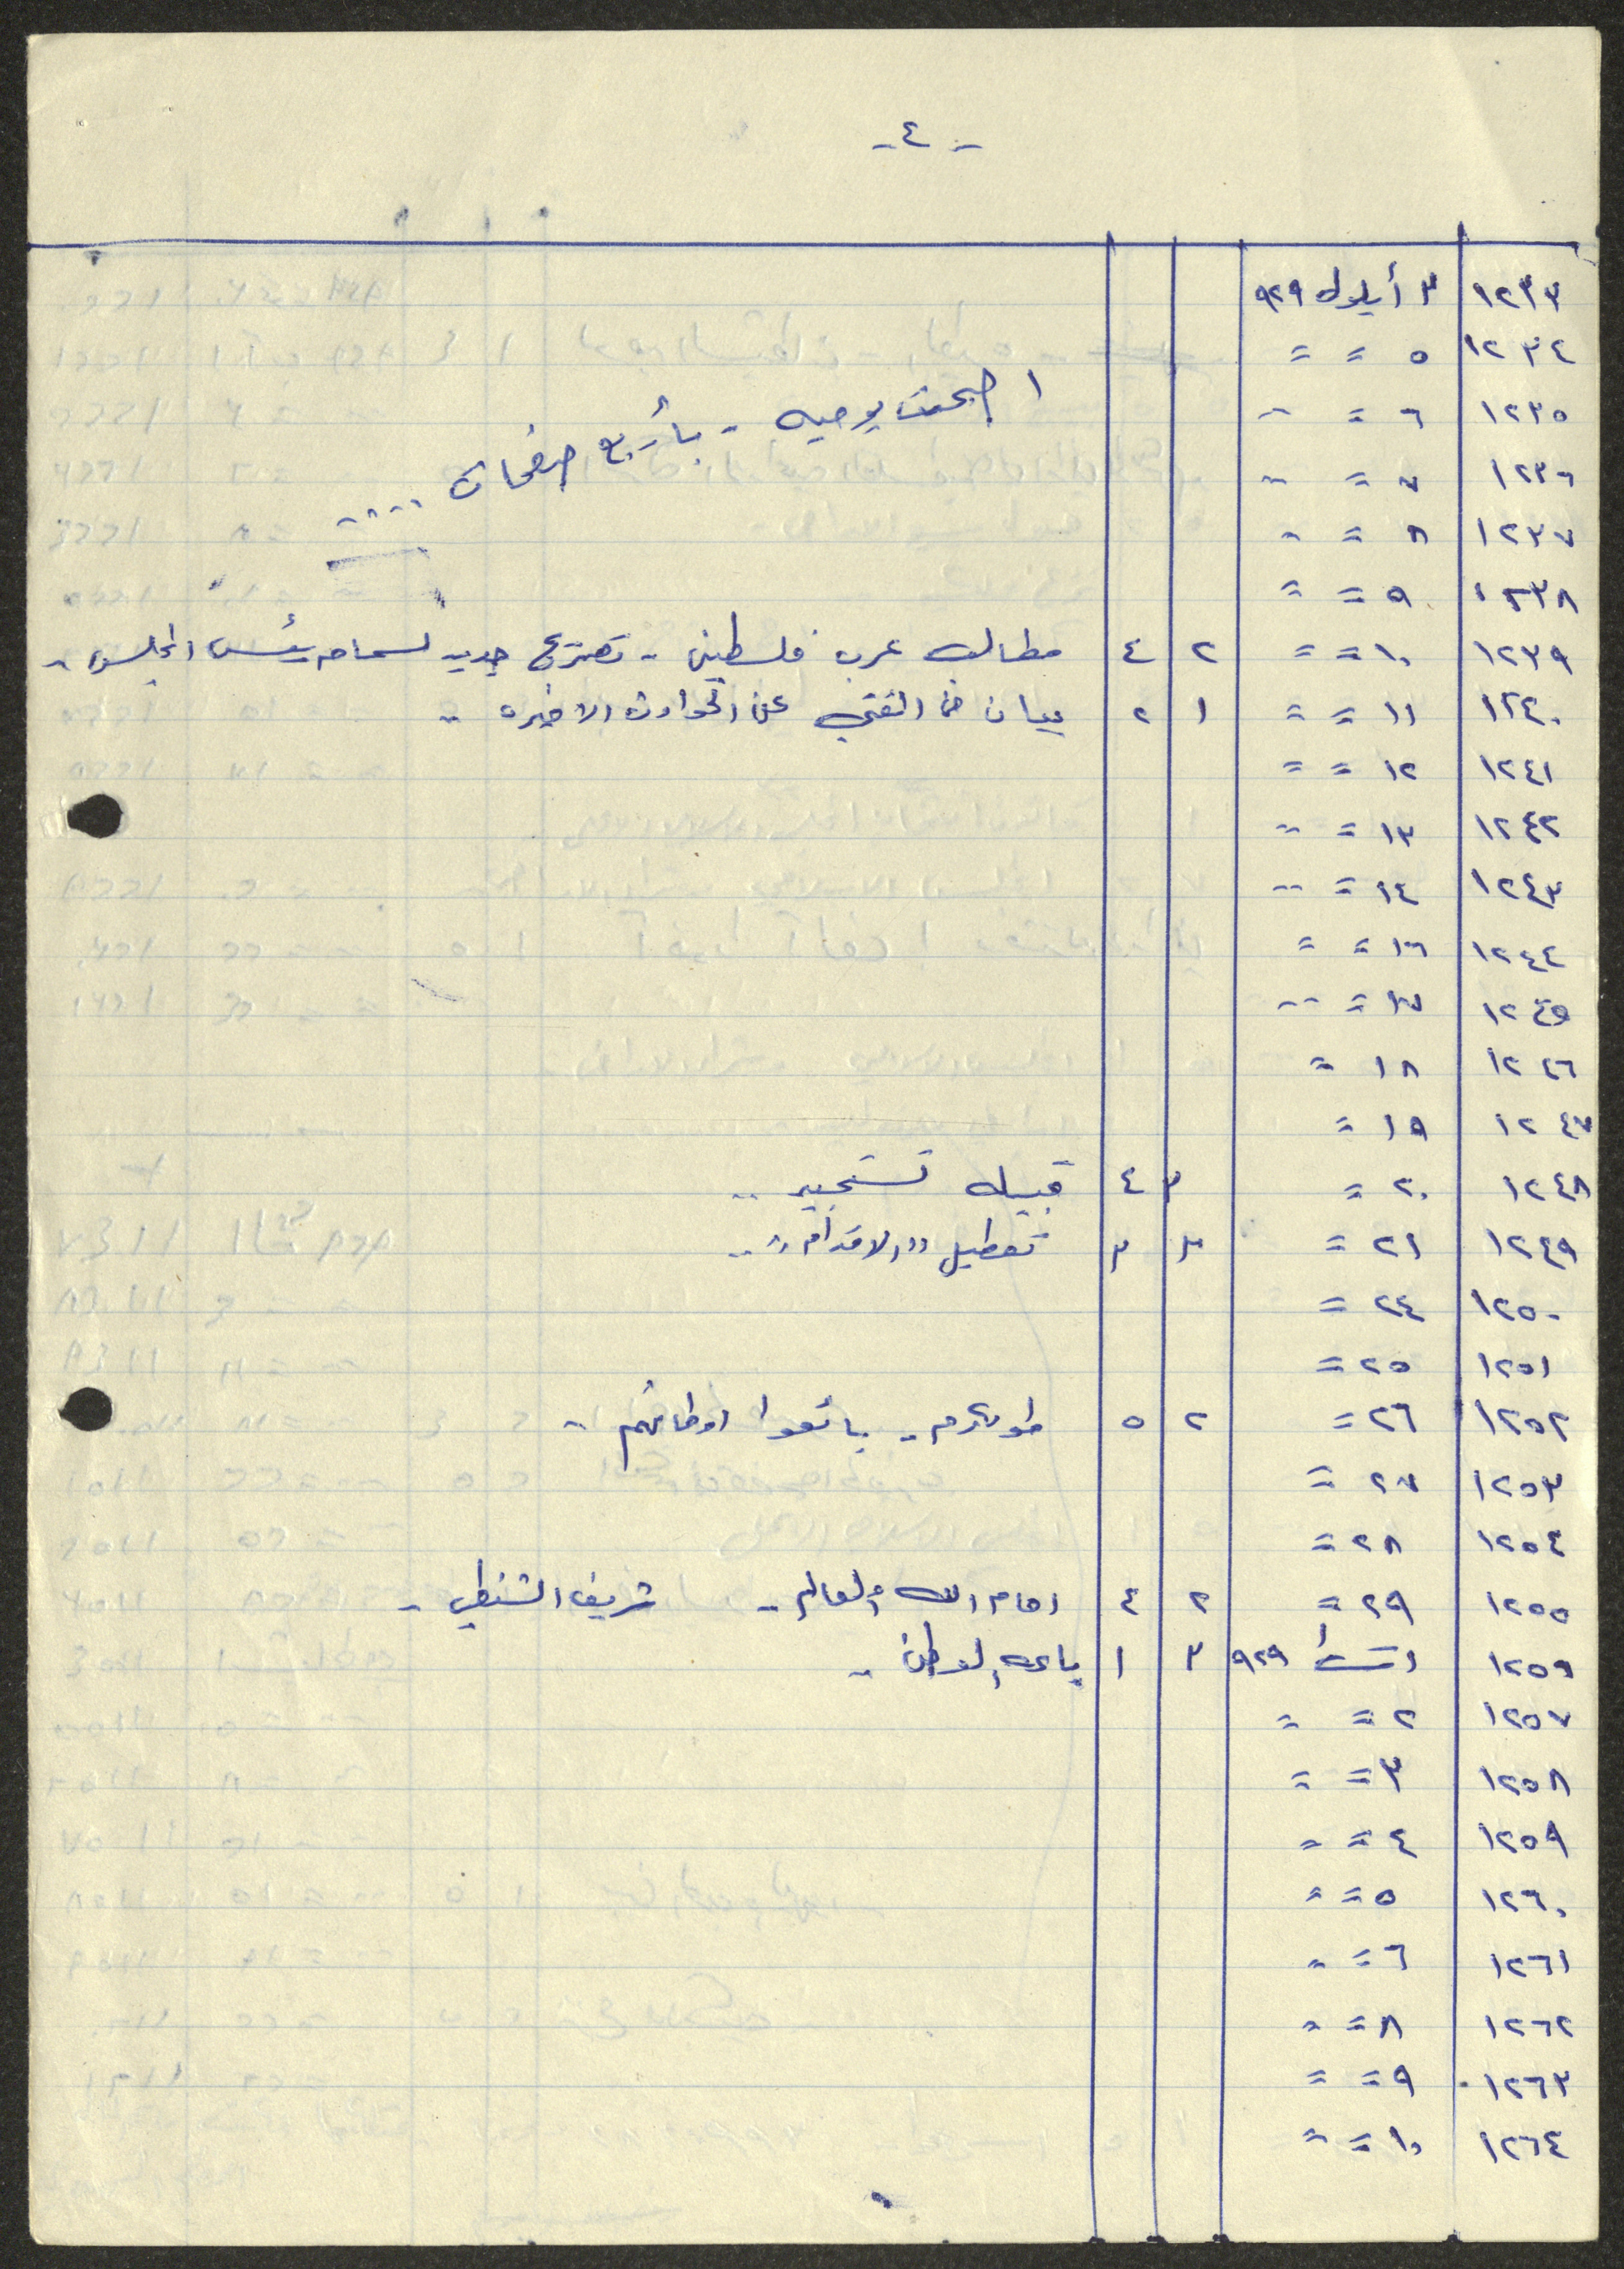 - ٤ -
١٢٣٣ ٣ أيلول ٩٢٩
١٢٣٤ ٥ = =
١٢٣٥ ٦ = =
اصبحت يوميه - بأربع صفحات ....
١٢٣٦ ٧ = =
١٢٣٧ ٨ = =
١٢٣٨ ٩ = =
١٢٣٩ ١٠ = = ٢ ٤ مطالب عرب فلسطين - تصريح جديد لسماحه رئيس المجلس -
١٢٤٠ ١١ = = ١ ٢ بيان من المفتي عن الحوادث الاخيره -
١٢٤١ ١٢ = =
١٢٤٢ ١٣ = =
١٢٤٣ ١٤ = =
١٢٤٤ ١٦ = =
١٢٤٥ ١٧ = =
١٢٤٦ ١٨ =
١٢٤٧ ١٩ =
١٢٤٨ ٢٠ = ٣ ٤ قبيله تستجير ..
١٢٤٩ ٢١ = ٣ ٣ تعطيل "الاقدام" ..
١٢٥٠ ٢٤ =
١٢٥١ ٢٥ =
١٢٥٢ ٢٦ = ٢ ٥ طولكرم - بائعوا اوطانهم -
١٢٥٣ ٢٧ =
١٢٥٤ ٢٨ =
١٢٥٥ ٢٩ = ٢ ٤ امام الله والعالم - شريف الشنطي -
١٢٥٦ ١ ت١ ٩٢٩ ٣ ١ باعه الوطن -
١٢٥٧ ٢ = =
١٢٥٨ ٣ = =
١٢٥٩ ٤ = =
١٢٦٠ ٥ = =
١٢٦١ ٦ = =
١٢٦٢ ٨ = =
١٢٦٣ ٩ = =
١٢٦٤ ١٠ = =